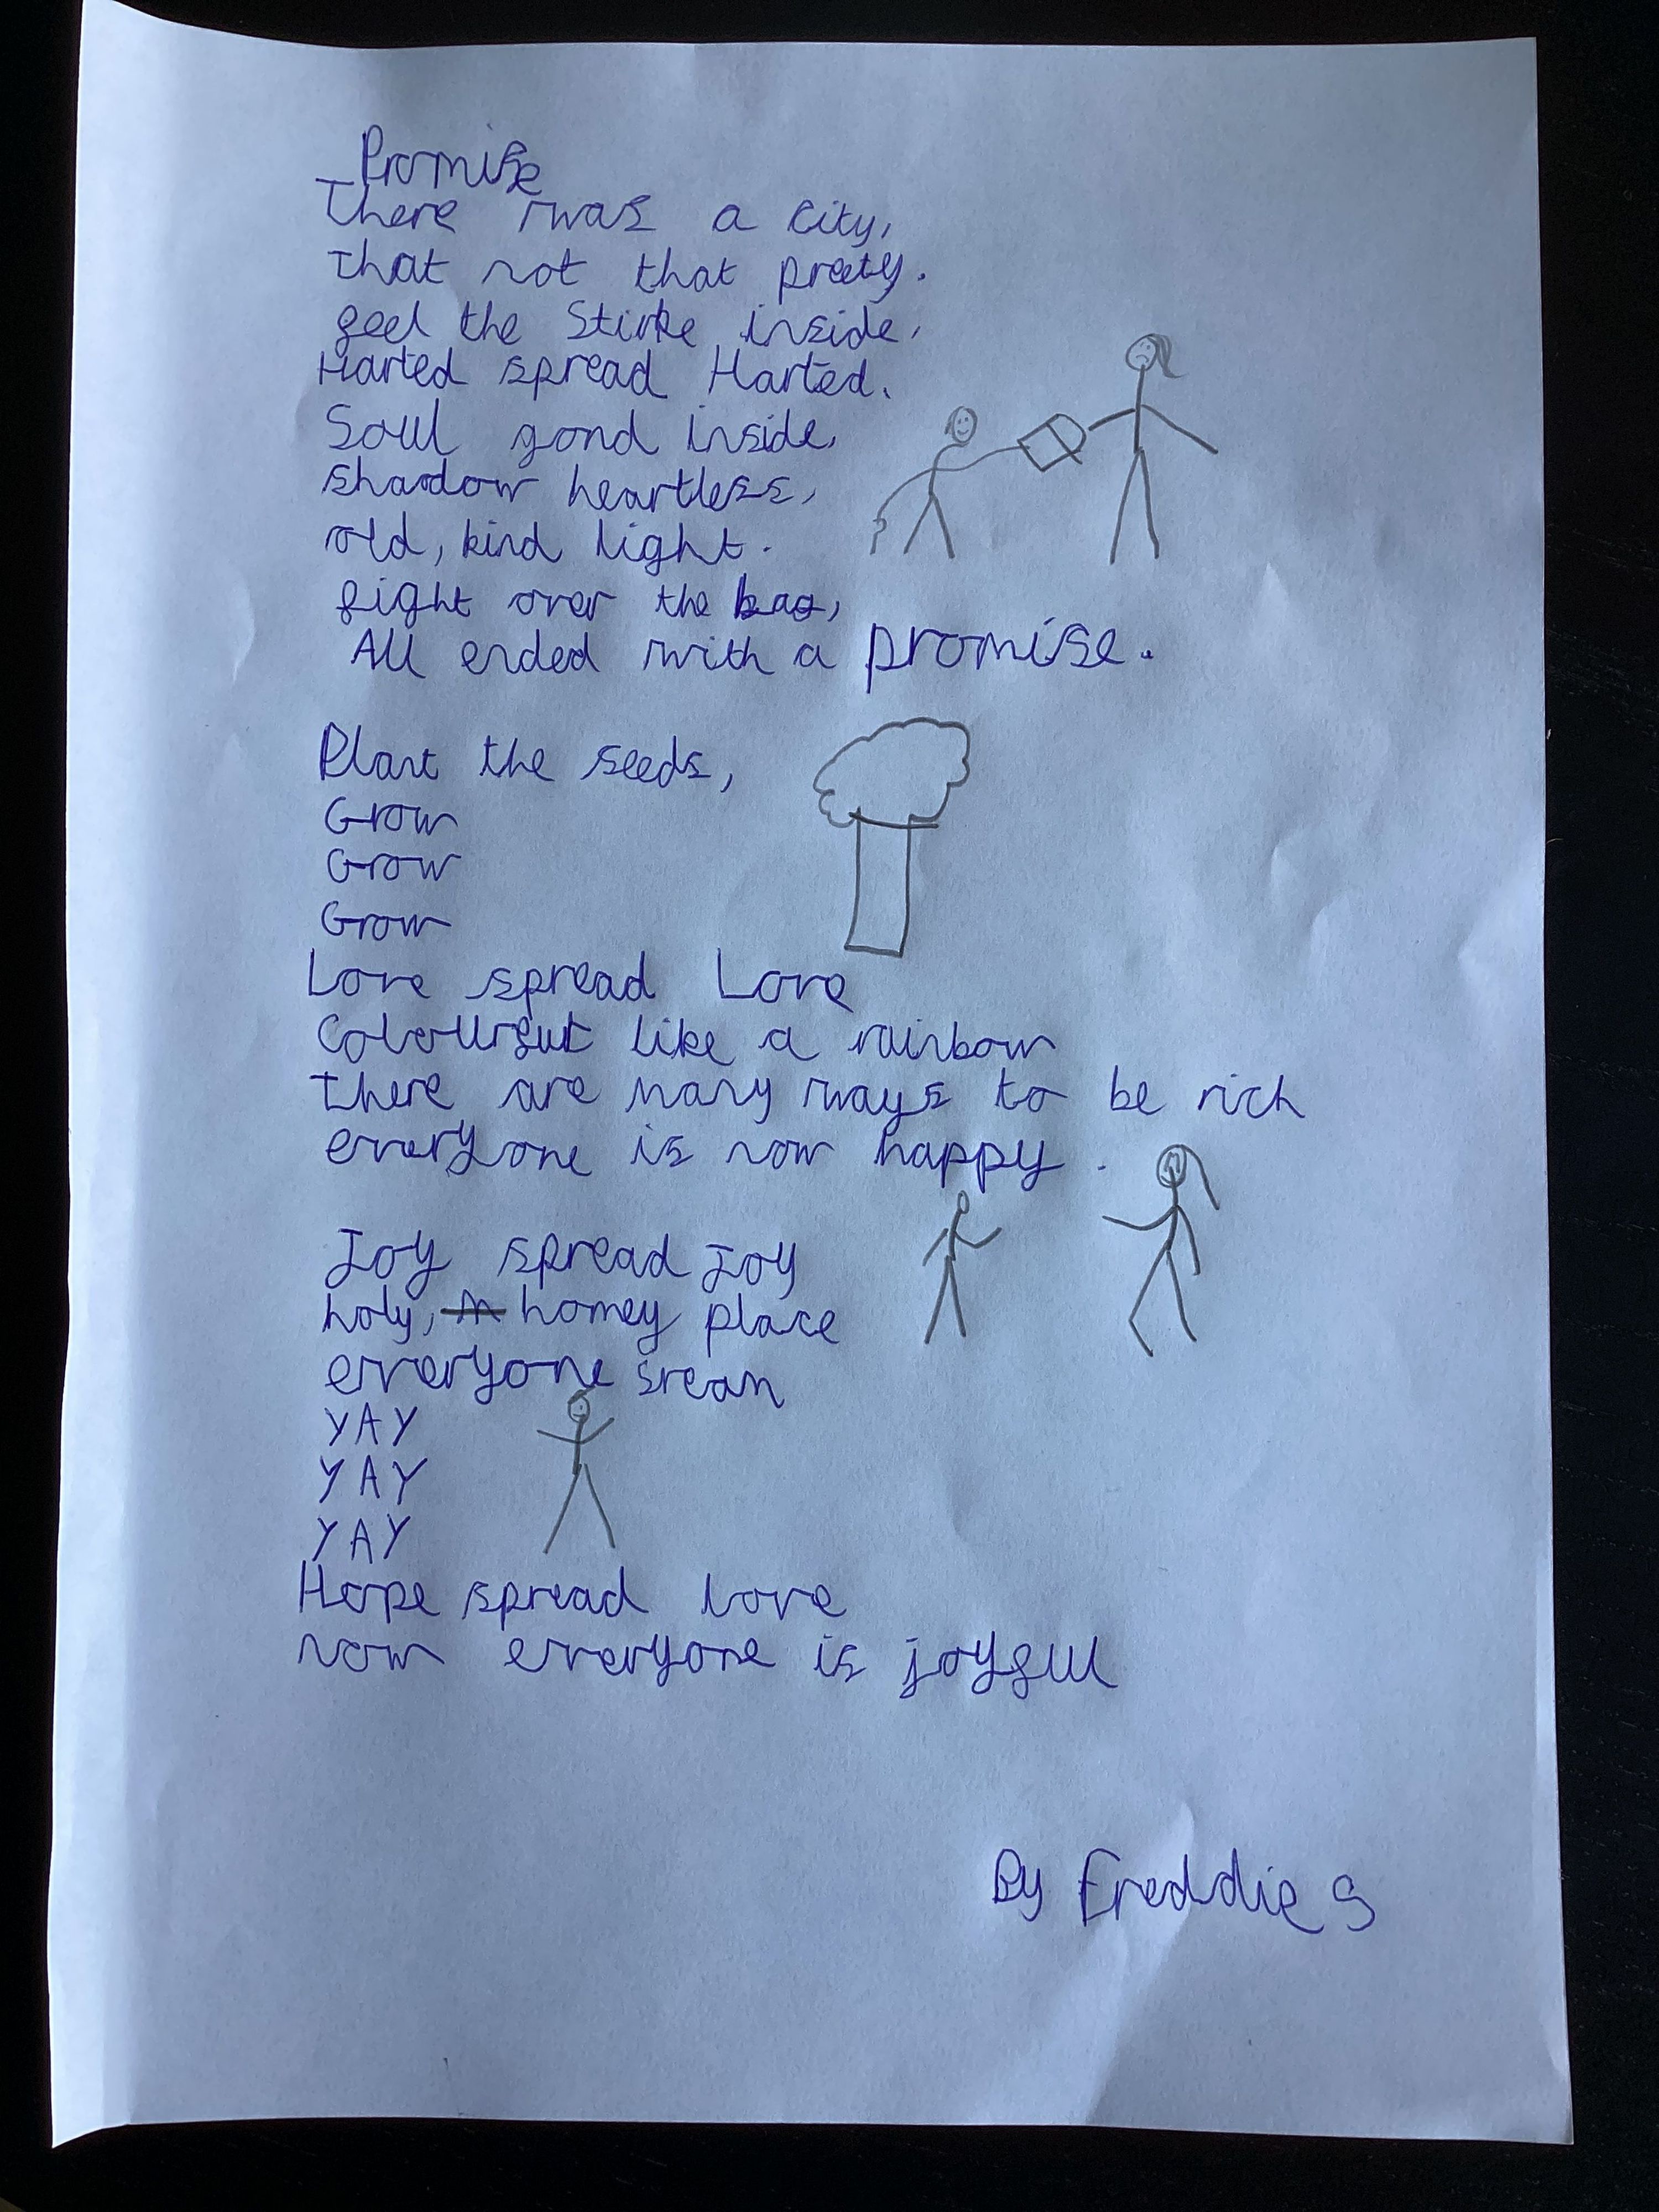 Promise
There was a city,
that not that preety.
feel the Stirke inside,
Harted spread Harted.
Soul gond inside,
shadow heartless,
old, kind light.
fight over the bag,
All ended with a promise.
Plant the seeds,
Grow
Grow
Grow
Love spread Love
Colourful like a rainbow
there are many ways to be rich
everyone is now happy.
Joy spread Joy
holy, homey place
everyone srean
YAY
YAY
YAY
Hope spread love
now everyone is joyful
By Freddie S